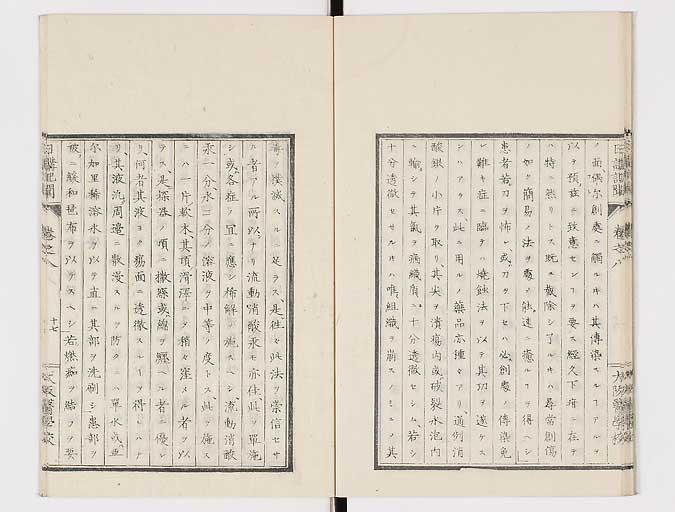 ノ面偶尓創處ニ觸ルヽ片其傳染スルヿアルヲ
以テ預メ茲ニ致意センヿヲ要ス經久下疳ニ在テ
ハ特ニ然リトス既ニ截除シ了ルヽ片ハ尋常創傷
ノ如ク簡易ノ法ヲ處ノ能速ニ癒ルヿヲ得ヘシ
患者若刀ヲ怖レ或ハ刀ヲ下セハ必創處ノ傳染免
レ難キ症ニ臨テハ燒蝕法ヲ以テ其功ヲ遂ケス
ンハアラス此ニ用ルノ藥品亦種々アリ通例消
酸銀ノ小片ヲ取リ其尖ヲ潰瘍内或破裂水泡内
ニ輸シテ其氣ヲ病織質ニ十分透徹セシム若シ
十分透徹セサルヽ片ハ唯組織ヲ崩スノミニノ其
毒ヲ撲滅スルニ足ラス是往々此法ヲ崇信セサ
ル者アル所以ナリ流動消酸汞モ亦佳此ヲ單施
シ或ハ各症ノ宜ニ應シ稀解シ施スヘシ流動消酸
汞一分水三分ノ溶液ヲ中等ノ度トス此ヲ施ス
ニハ一片軟木其頂滑澤ニノ稍々窪スル者ヲ以
テス是探器ノ頂ニ撒糸或綿ヲ纒ヘル者ニ優レ
リ何者其液ヨク瘍面ニ透徹スルヿヲ得レハナ
リ其液流周邊ニ散漫スルヲ防クニハ單水或亜
尓加里稀溶水ヲ以テ直ニ其部ヲ洗刷シ患部ヲ
被ニ緩和琶布ヲ以テスヘシ若燃痂ヲ結フヲ要
日講記聞
卷之八
十七
大阪醫學校